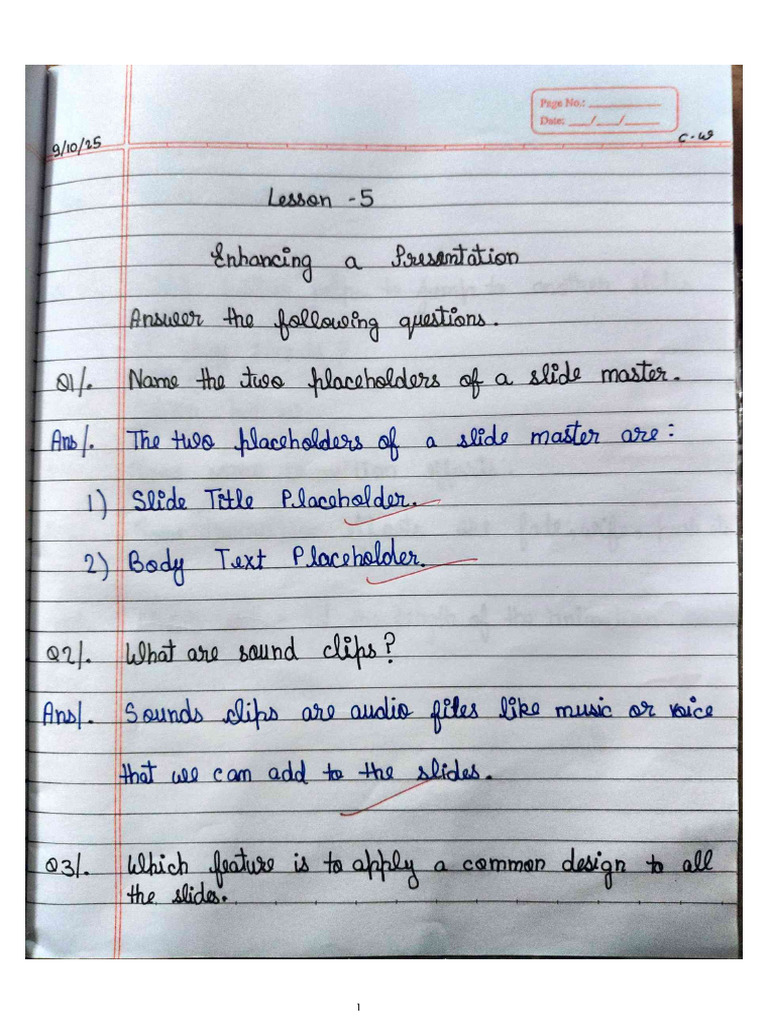 Page No.: ___________
Date: ___/___/_____
9/10/25
C-W
Lesson -5
Enhancing a Presentation
Answer the following questions.
Q1/. Name the two placeholders of a slide master.
Ans/. The two placeholders of a slide master are:
1) Slide Title Placeholder.
2) Body Text Placeholder.
Q2/. What are sound clips?
Ans/. Sounds clips are audio files like music or voice
that we can add to the slides.
Q3/. Which feature is to apply a common design to all
the slides.
1